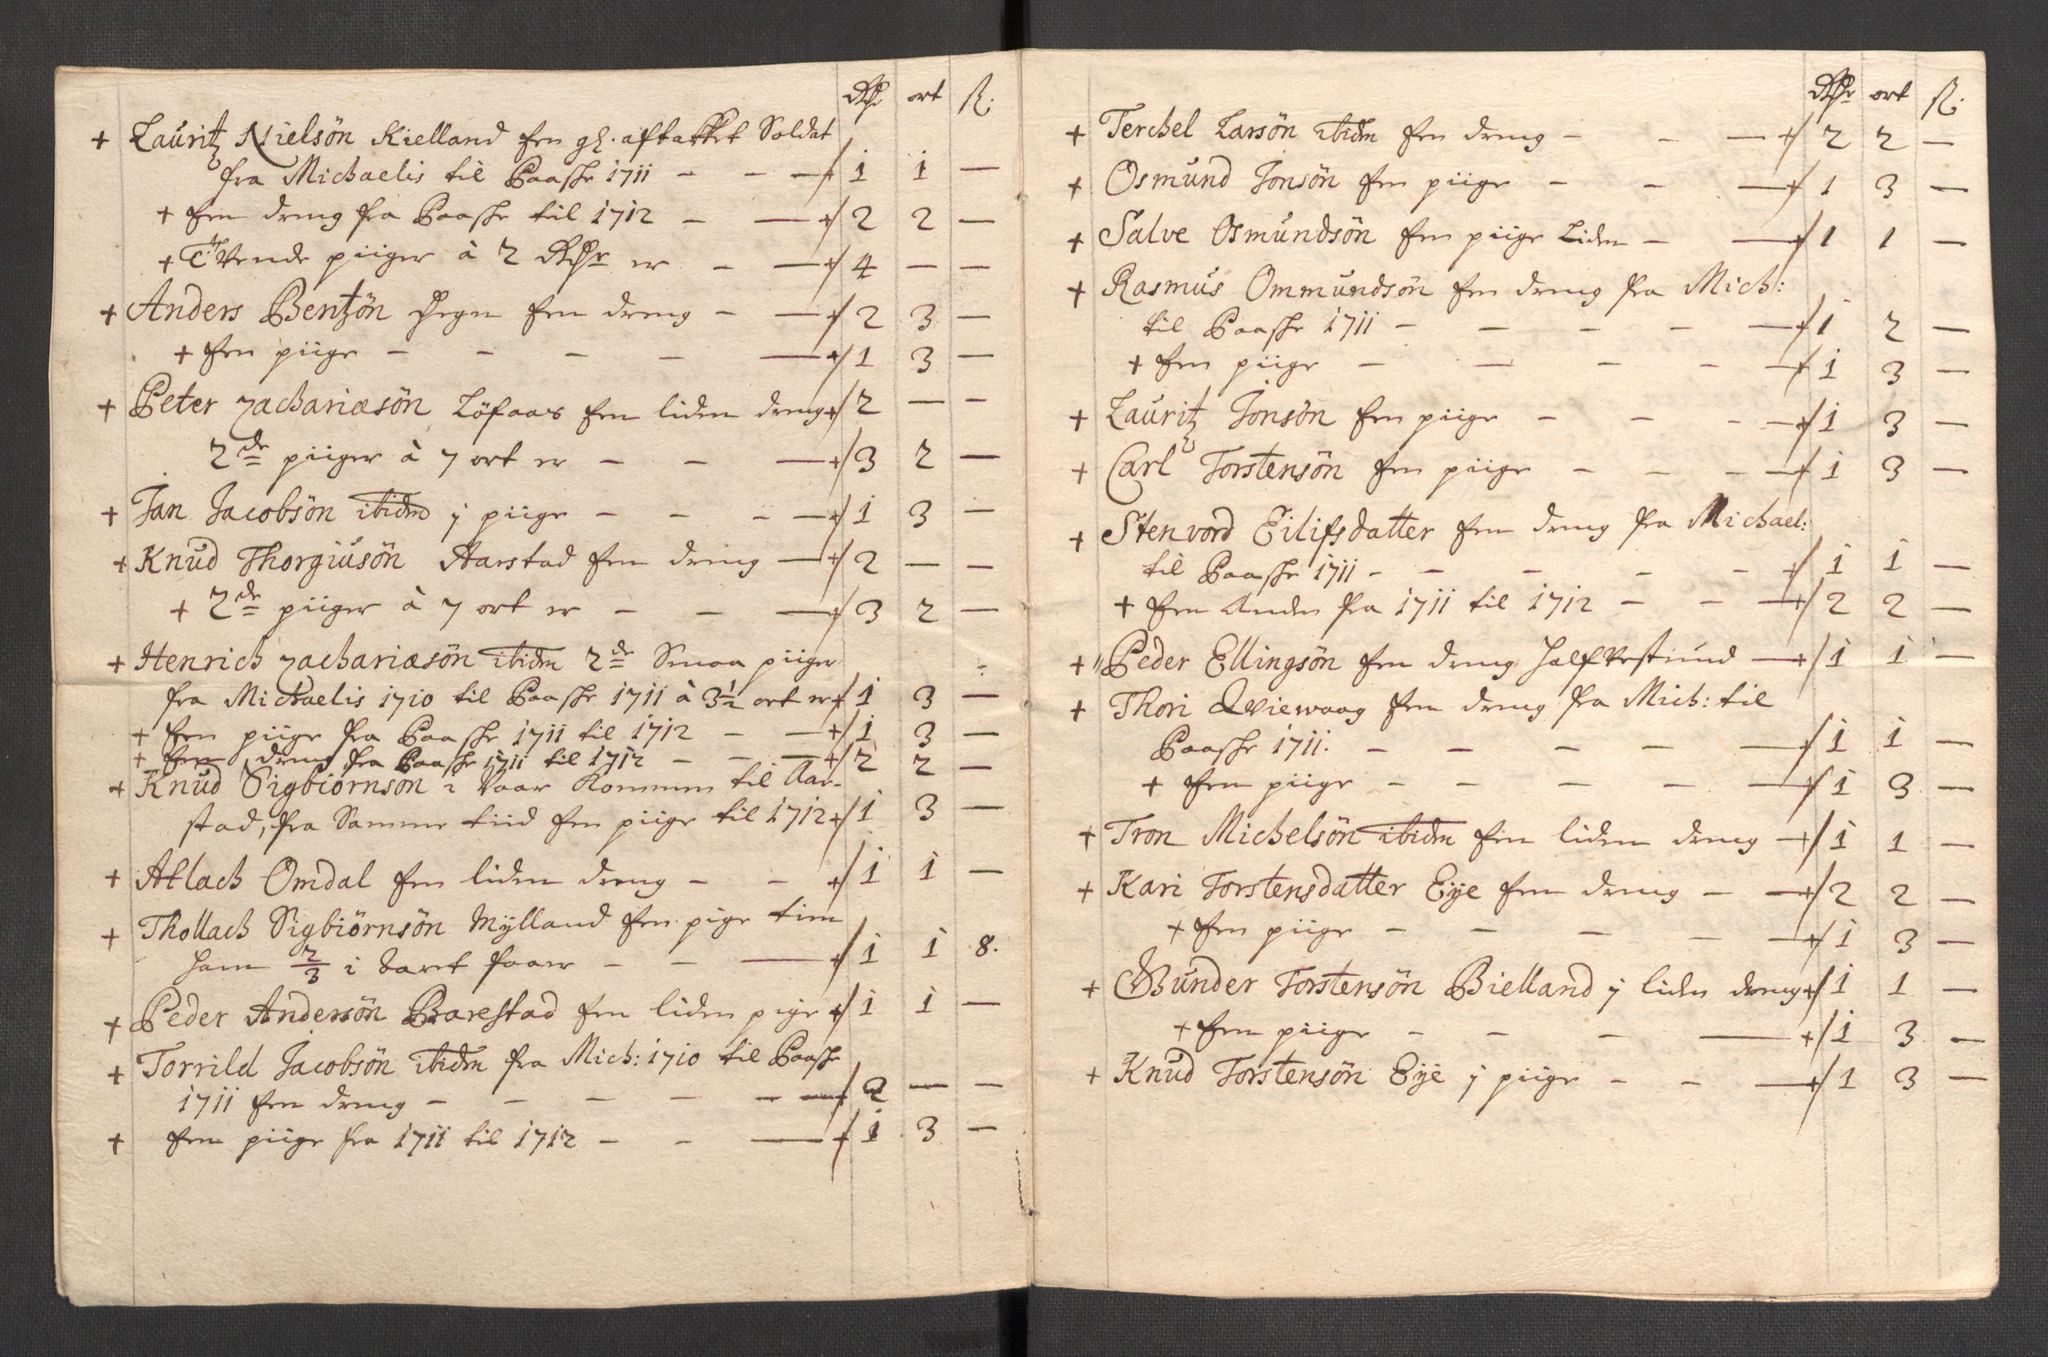 Rdr ort ß:
+ Lauritz Nielsön Kielland een gl. aftakket Soldat
fra Michaelis til Paasche 1711 - - - 1 1 -
+ een dreng fra Paasche til 1712 - - 2 2 -
+ Tvende piiger à 2 Rdr er - - 4 - -
+ Anders Bentzön Hegre een dreng - - 2 3 -
+ een piige - - - - - 1 3 -
+ Peter Zachariæsön Löfaas een liden dreng 2 - -
2de piiger à 7 ort er - - - 3 2 -
+ Jan Jacobsön ibidm j piige - - - - 1 3 -
+ Knud Thorgiusön Aarstad een dreng - 2 - -
+ 2de piiger à 7 ort er - - - 3 2 -
+ Henrich Zachariæsön ibidm 2de Smaa piiger
fra Michaelis 1710 til Paasche 1711 à 3½ ort er 1 3 -
+ een piige fra Paasche 1711 til 1712 - - 1 3 -
+ een dreng fra Paasche 1711 til 1712 - - - 2 2 -
+ Knud Sigbiörnsön i Vaar kommen til Aar-
stad, fra Samme tiid een piige til 1712 1 3 -
+ Atlach Omdal een liden dreng - - 1 1 -
+ Thollach Sigbiörnsön Mÿlland een pige tien
ham 2/3 i baret faaer - - - 1 1 8.
+ Peder Andersön Barestad een liden pige 1 1 -
+ Torrild Jacobsön ibidm fra Mich: 1710 til Paasche
1711 een dreng - - - - - - 2 - -
+ een piige fra 1711 til 1712 - - - 1 3 -
Rdr ort ß:
+ Terchel Larsön ibidm een dreng - - - 2 2 -
+ Osmund Jonsön een piige - - - 1 3 -
+ Salve Osmundsön een piige Liden - - 1 1 -
+ Rasmus Ommundsön een dreng fra Mich:
til Paasche 1711 - - - - - 1 2 -
+ een piige - - - - - 1 3 -
+ Lauritz Jonsön een piige - - - - 1 3 -
+ Carl Torstensön een piige - - - - 1 3 -
+ Stenvord Eilifsdatter een dreng fra Michael:
til Paasche 1711 - - - - - 1 1 -
+ een anden fra 1711 til 1712 - - - 2 2 -
+ Peder Ellingsön een dreng halfvoxtiund - 1 1 -
+ Thori Qviewaag een dreng fra Mich: til
Paasche 1711. - - - - - 1 1 -
+ een piige - - - - - 1 3 -
+ Tron Michelsön ibidm een liden dreng - 1 1 -
+ Kari Torstensdatter Eÿe een dreng - - 2 2 -
+ een piige - - - - - 1 3 -
+ Gunder Torstensön Bielland j liden dreng 1 1 -
+ een piige - - - - 1 3 -
+ Knud Torstensön Eÿe j piige - - - 1 3 -